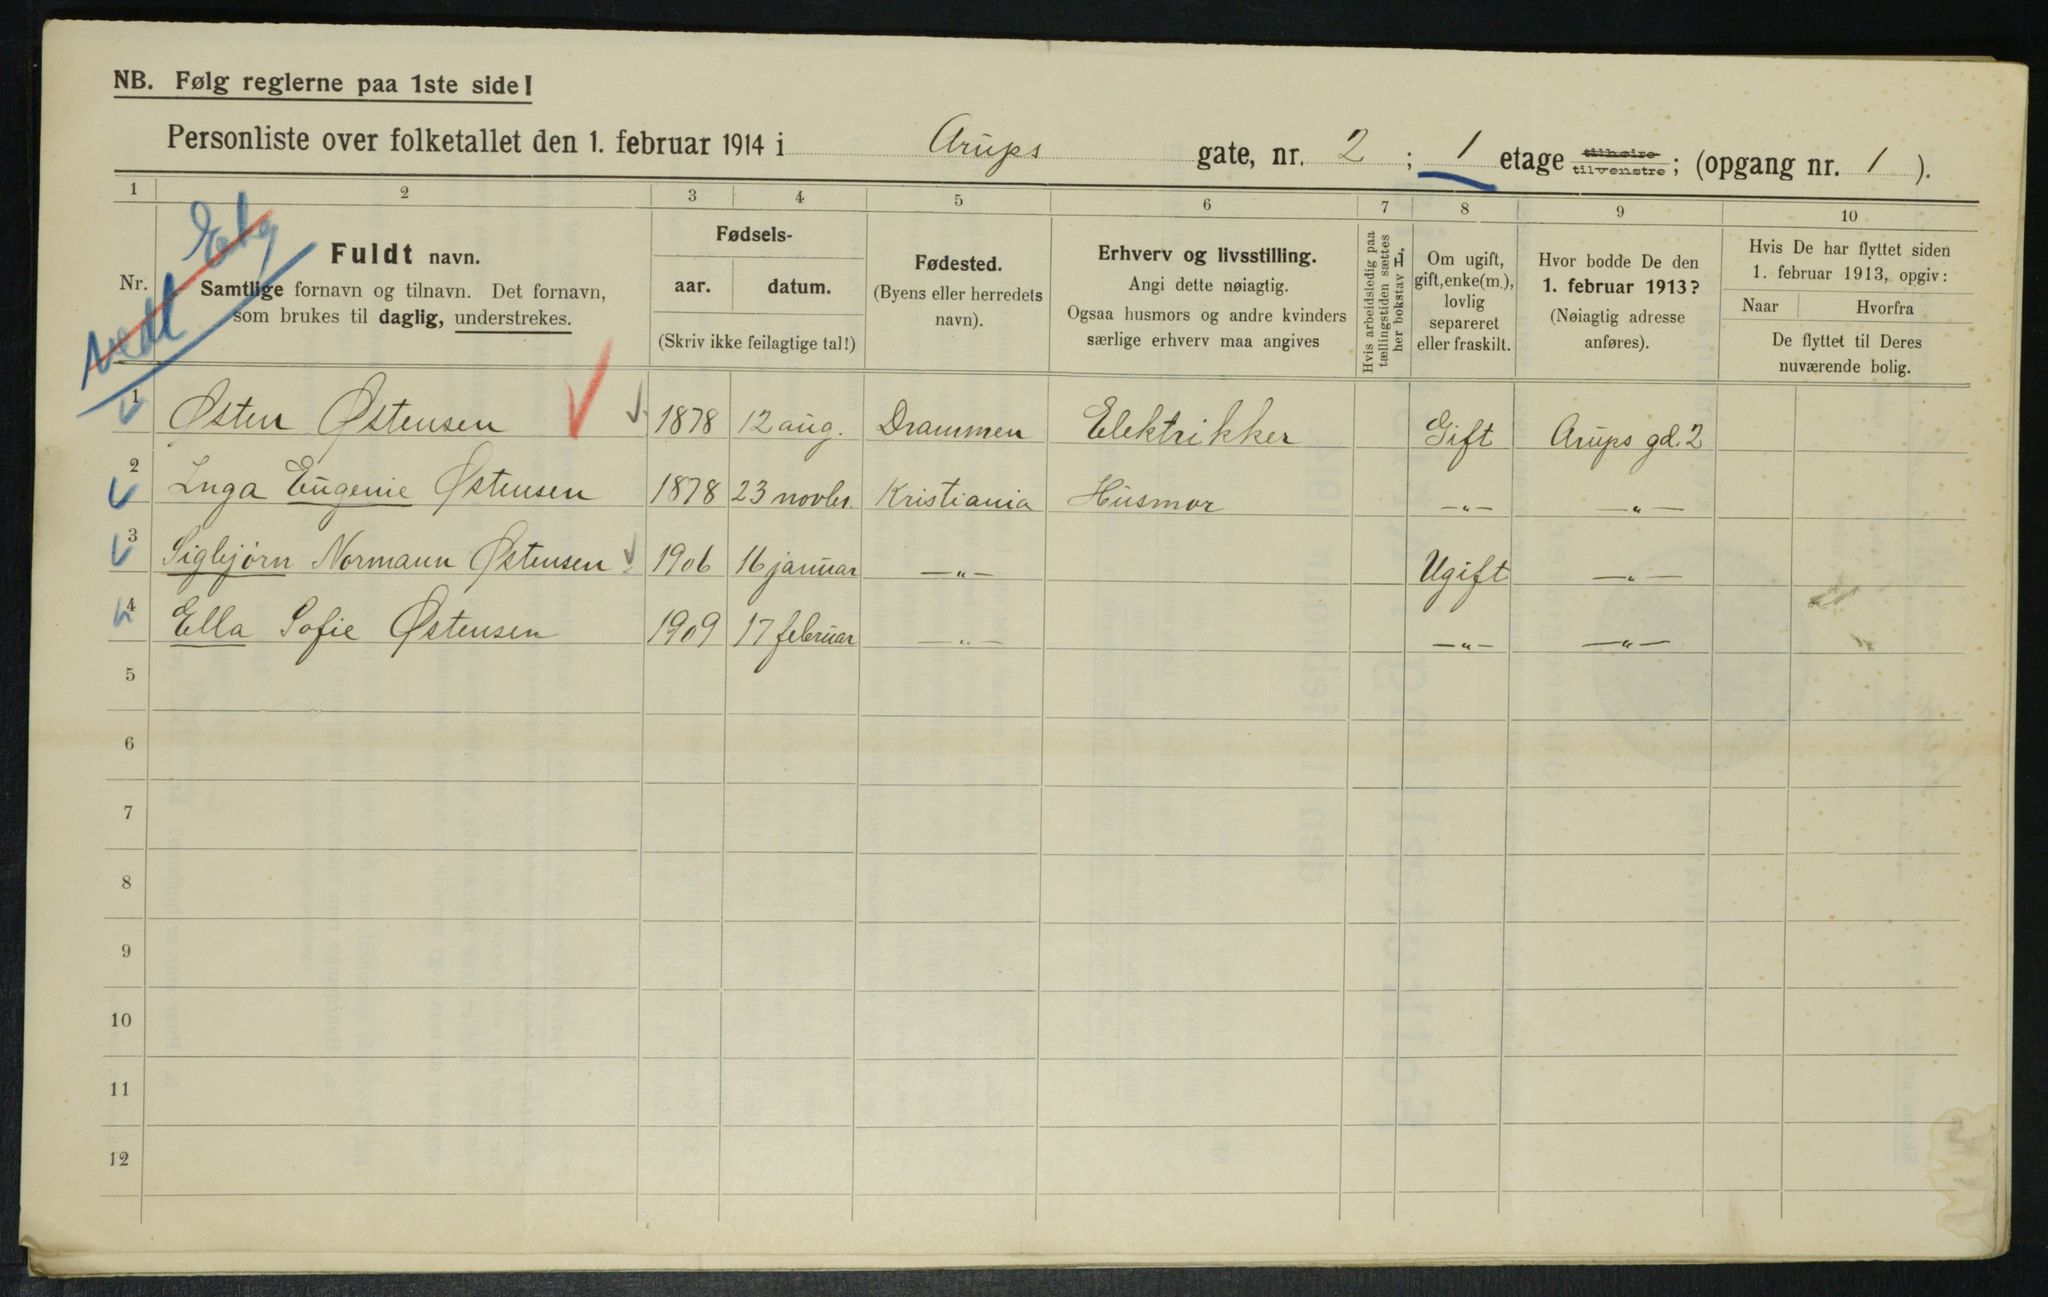 NB. Følg reglerne paa 1ste side!
Personliste over folketallet den 1. februar 1914 i Arups gate, nr. 2 ; 1 etage tilhøire tilvenstre ; (opgang nr. 1 ).
1 2 3 4 5 6 7 8 9 10
Nr.
Fuldt navn.
Samtlige fornavn og tilnavn. Det fornavn,
som brukes til daglig, understrekes.
Fødsels-
aar. datum.
(Skriv ikke feilagtige tal!)
Fødested.
(Byens eller herredets
navn).
Erhverv og livsstilling.
Angi dette nøiagtig.
Ogsaa husmors og andre kvinders
særlige erhverv maa angives
Hvis arbeidsledig paa
tællingstiden sættes
her bokstav L.
Om ugift,
gift, enke(m.),
lovlig
separeret
eller fraskilt.
Hvor bodde De den
1. februar 1913?
(Nøiagtig adresse
anføres).
Hvis De har flyttet siden
1. februar 1913, opgiv:
Naar Hvorfra
De flyttet til Deres
nuværende bolig.
1 Østen Østensen 1878 12 aug. Drammen Elektrikker Gift Arups gd. 2
2 Inga Eugenie Østensen 1878 23 novbr. Kristiania Husmor —"— —"—
3 Sigbjørn Normann Østensen 1906 16 januar —"— Ugift —"—
4 Ella Sofie Østensen 1909 17 februar —"— —"— —"—
5
6
7
8
9
10
11
12